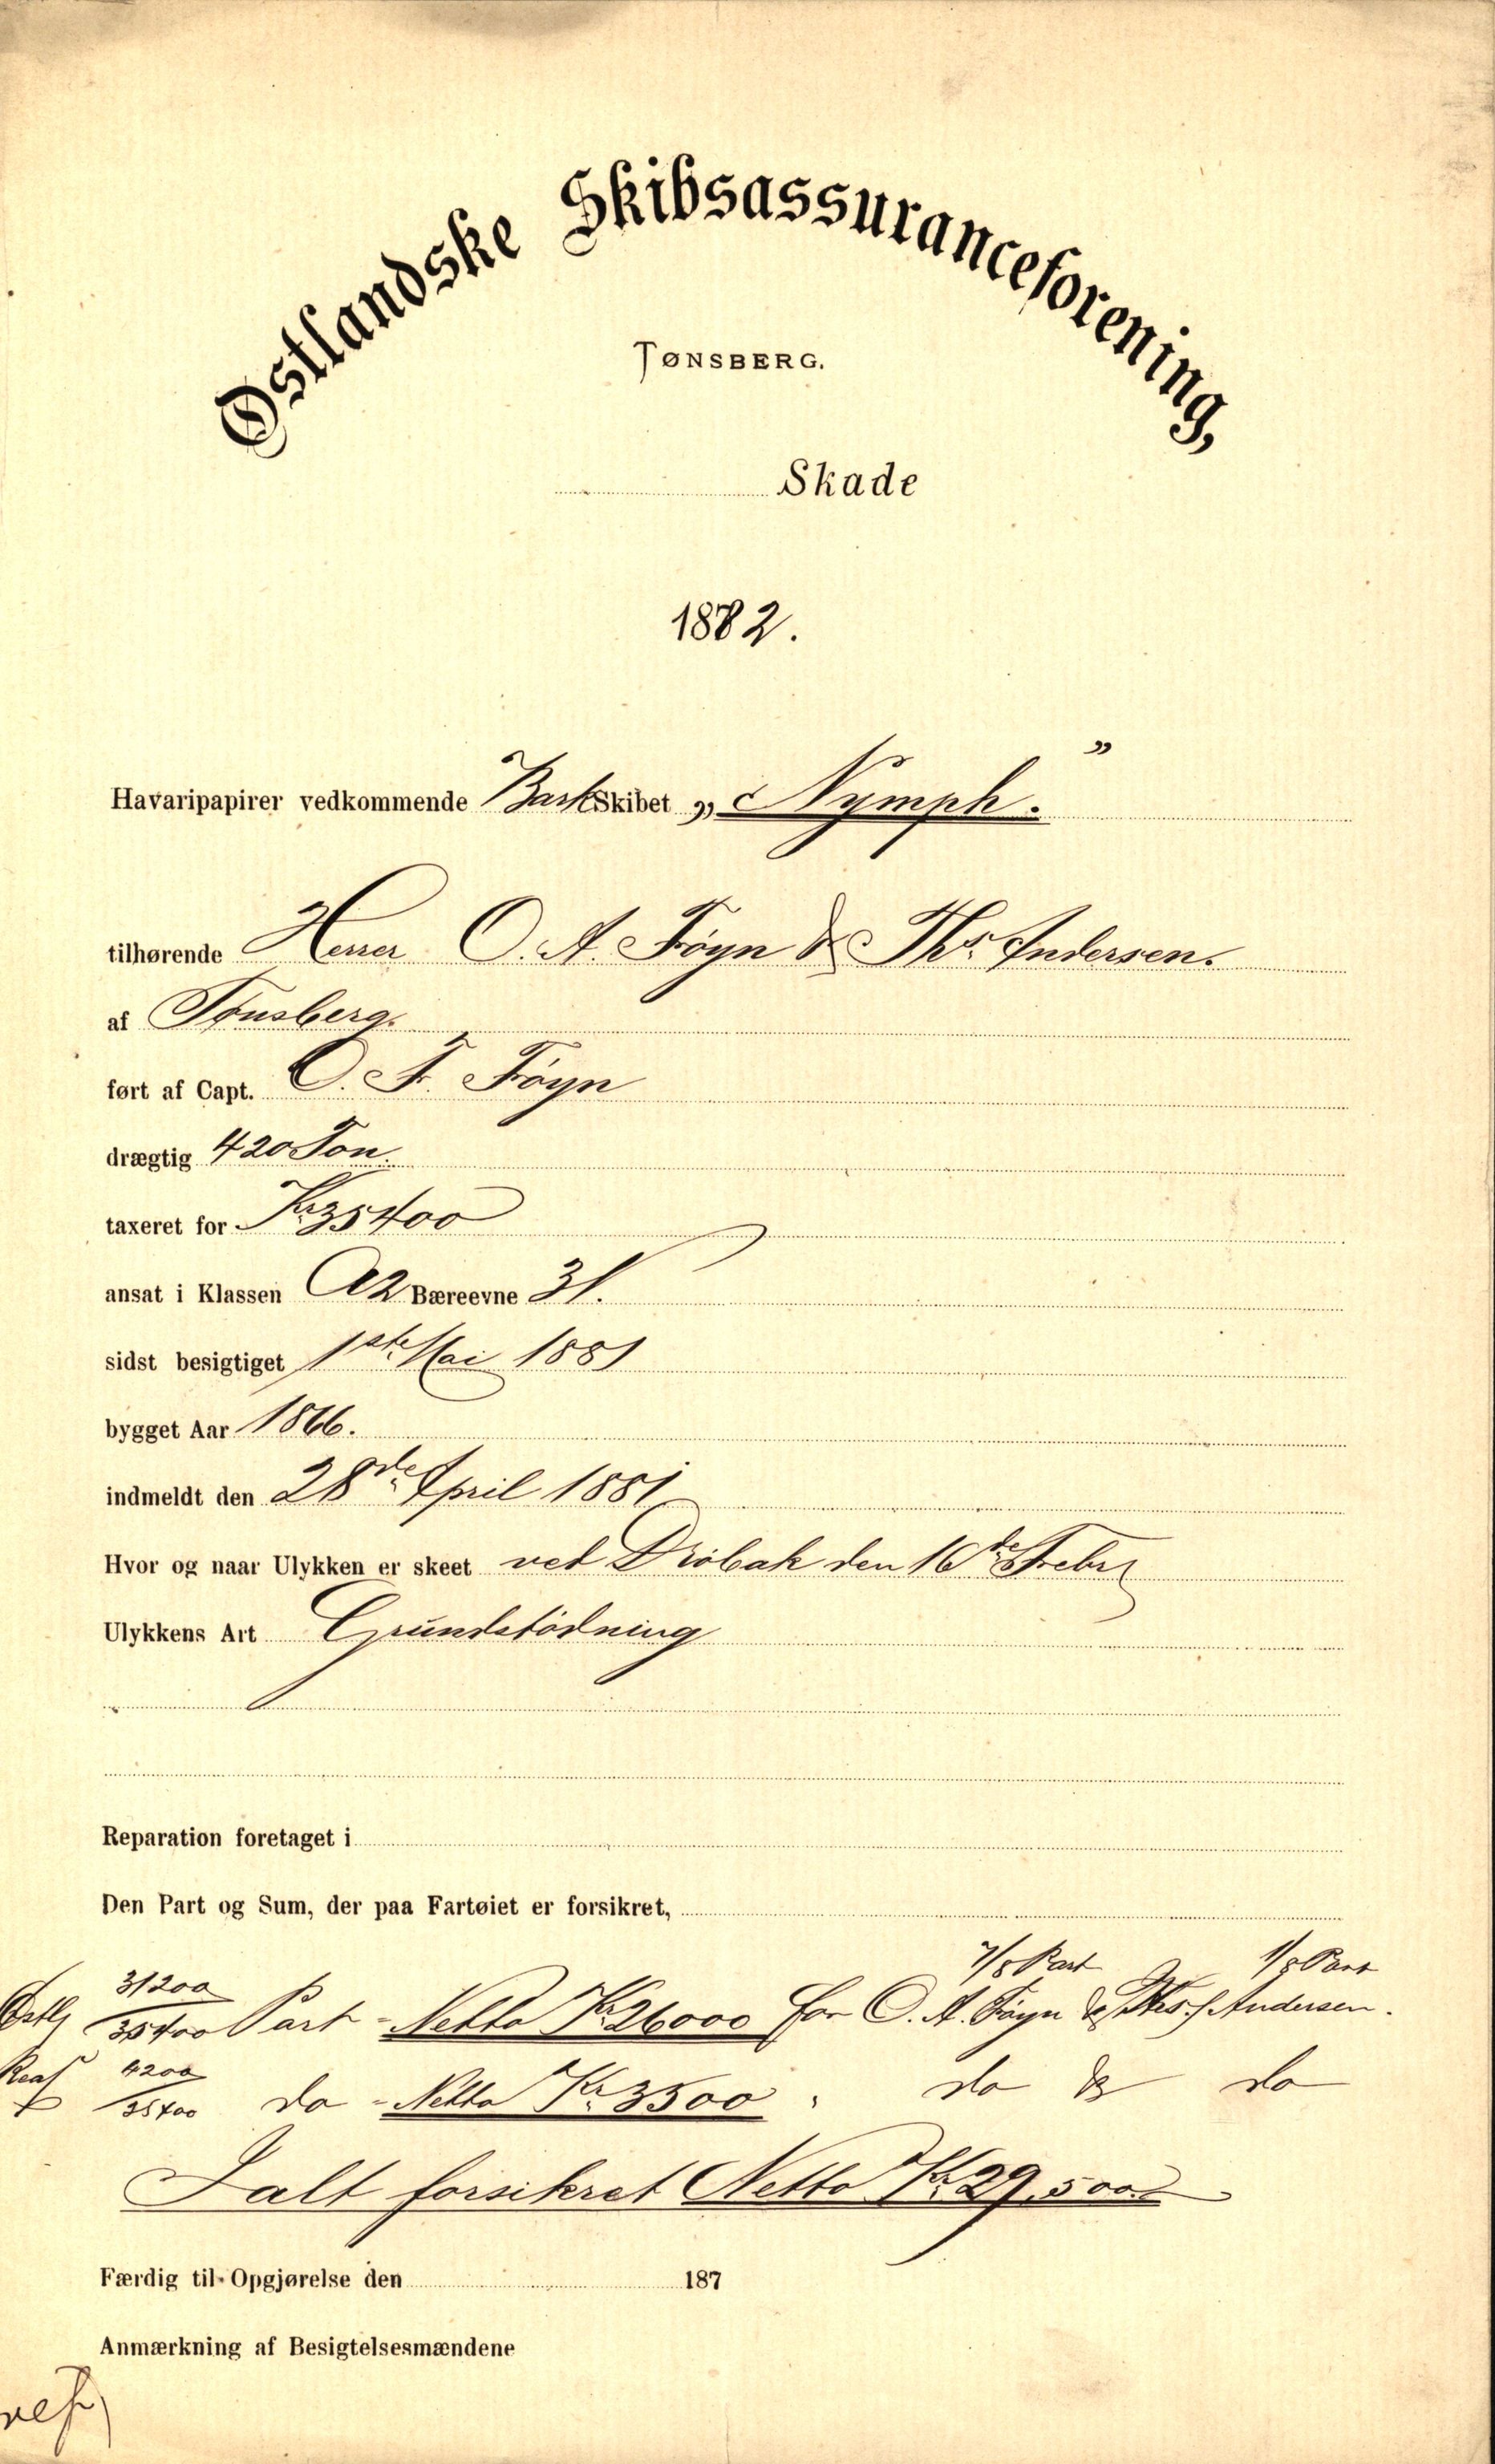 Østlandske Skibsassuranceforening,
TØNSBERG.
Skade
1882.
Havaripapirer vedkommende Bark Skibet „Nymph."
tilhørende Herrer O. A. Föyn & Ths. Andersen.
af Tønsberg.
ført af Capt. O. F. Föyn
drægtig 420 Ton.
taxeret for Kr. 35400
ansat i Klassen A2 Bæreevne 31.
sidst besigtiget 1ste Mai 1881
bygget Aar 1866.
indmeldt den 28de April 1881
Hvor og naar Ulykken er skeet ved Dröbak den 16de Febr
Ulykkens Art Grundstödning
Reparation foretaget i
Den Part og Sum, der paa Fartøiet er forsikret,
7/8 Part 1/8 Part
Østl 31200/35400 Part - Netto Kr. 26000 for O. A. Föyn & Ths. Andersen.
4200/35400 do - Netto Kr. 3500 " do & do
Ialt forsikret Netto Kr. 29,500
Færdig til Opgjørelse den 187
Anmærkning af Besigtelsesmændene